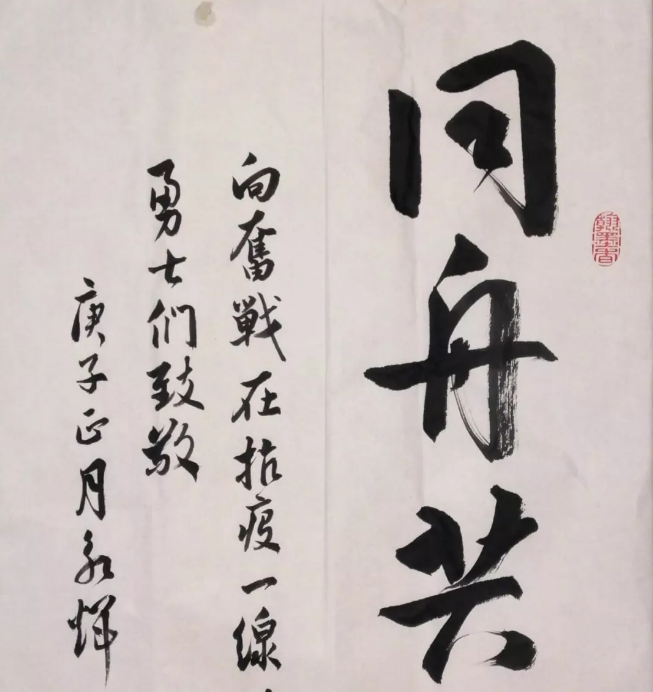 同舟共
向奮戰在抗疫一線
勇士們致敬
庚子正月永辉